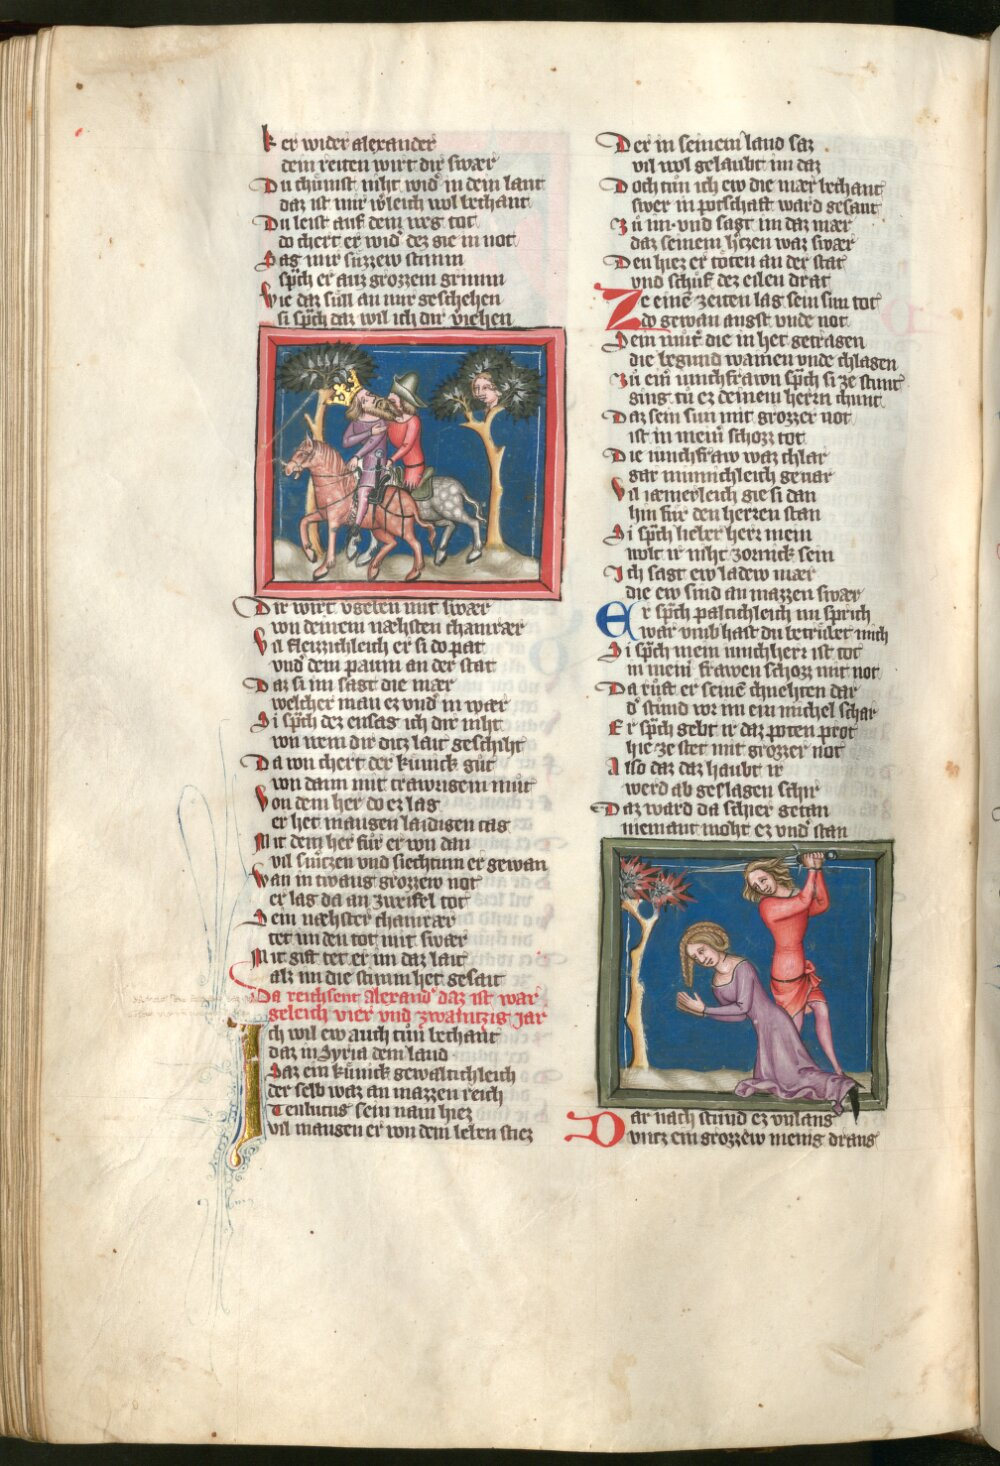 Ker wider alexander
dem reiten wirt dir swær
Du chůmst niht wid᾽ in dem lant
daz ist mir w̓leich wol bechant
Du leist auf dem weg tot
do chert er wid᾽ dez gie in not
Sag mir sůzzew stimm
sp̄ch er auz grozzem grimm
Wie daz sull an mir geschehen
si sp̄ch daz wil ich dir v̓iehen
Dir wirt v̓geben mit swær
von deinem næhsten chamrær
Vil fleizzichleich er si do pat
vnd᾽ dem paum an der stat
Daz si im sagt die mær
welcher man ez vnd᾽ in wær
Si sp̄ch dez ensag ich dir niht
von wem dir ditz lait geschiht
Da von chert der kůnick gůt
von dann mit trawrigem můt
Von dem her do ez lag
er het mangen laidigen tag
Mit dem her fůr er von dan
vil sůftzen vnd siechtum er gewan
Wan in twang grozzew not
er lag da an zweifel tot
Sein næhster chamrær
tet im den tot mit swær
Mit gift tet er im daz lait
alz im die stimm het gesait
Da reichsent Alexand᾽ daz ist war
geleich vier vnd zwaintzig jar
Ich wil ew auch tůn bechant
daz in Syria dem land
Saz ein kůnick gewaltichleich
der selb waz an mazzen reich
Tenbucus sein nam hiez
vil mangen er von dem leben stiez
Der in seinem land saz
vil wol gelaubt im daz
Doch tůn ich ew die mær bechant
swer in potschaft ward gesant
Zů im vnd sagt im daz mær
daz seinem h̓tzen waz swær
Den hiez er töten an der stat
vnd schůf dez eilen drat
Ze einē zeiten lag sein sun tot
do gewan angst vnde not
Sein můt᾽ die in het getragen
die begund wainen vnde chlagen
Zů ein᾽ iunchfrawn sp̄ch si ze stunt
ging tů ez deinem herrn chunt
Daz sein sun mit grozzer not
ist in mein᾽ schozz tot
Die iunchfraw waz chlar
gar minnichleich gevar
Vil iæmerleich gie si dan
hin für den herren stan
Si sp̄ch lieber herr mein
wolt ir niht zornick sein
Ich sagt ew laidew mær
die ew sind an mazzen swær
Er sp̄ch paltichleich nu sprich
war vmb hast du betrůbet mich
Si sp̄ch mein iunchherr ist tot
in mein᾽ frawen schozz mit not
Da růft er seinē chnehten dar
d᾽ stůnd vor im ein michel schar
Er sp̄ch gebt ir daz poten prot
hie ze stet mit grozzer not
Also daz daz haubt ir
werd ab geslagen schir
Daz ward da schier getan
niemant moht ez vnd᾽ stan
Dar nach stůnd ez vnlang
vntz ein grozzew menig drang